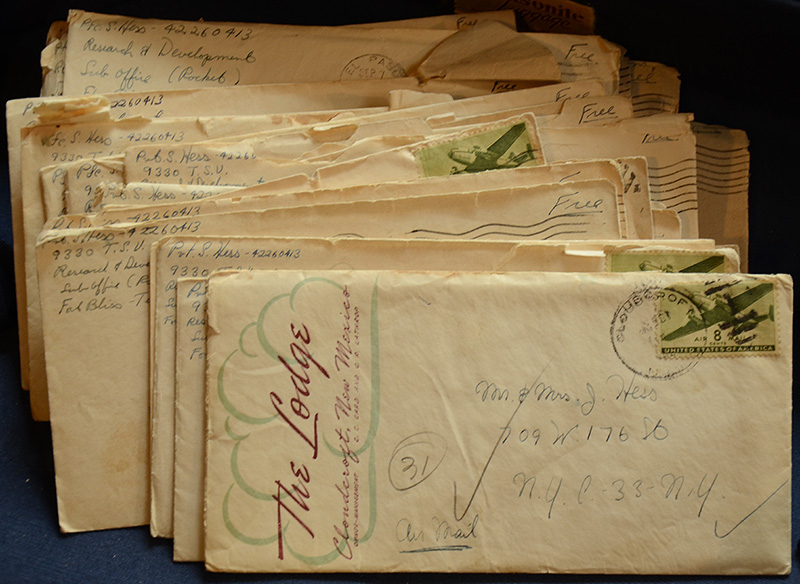 Pfc S. Hess - 42260413
Research & Development
Sub Office (Rocket)
Free
PASO
SEP 7
42260413
Free
Pfc. S. Hess - 42260413
9330 T.
Free
Pvt S. Hess 42260
9330 T.S.U.
Free
Pvt S. Hess - 42260413
Hess - 42260413
9330 T.S.U.
Research & Deve
Sub Office (R
Fort Bliss Te
Free
Pvt. S. Hess - 42260413
9330 T.S.U.
The Lodge
Cloudcroft, New Mexico
CLOUDCROFT
AIR MAIL
8
CENTS
UNITED STATES OF AMERICA
Mr. & Mrs. J. Hess
709 W. 176 St
N.Y.C - 33 - N.Y.
31
Air Mail